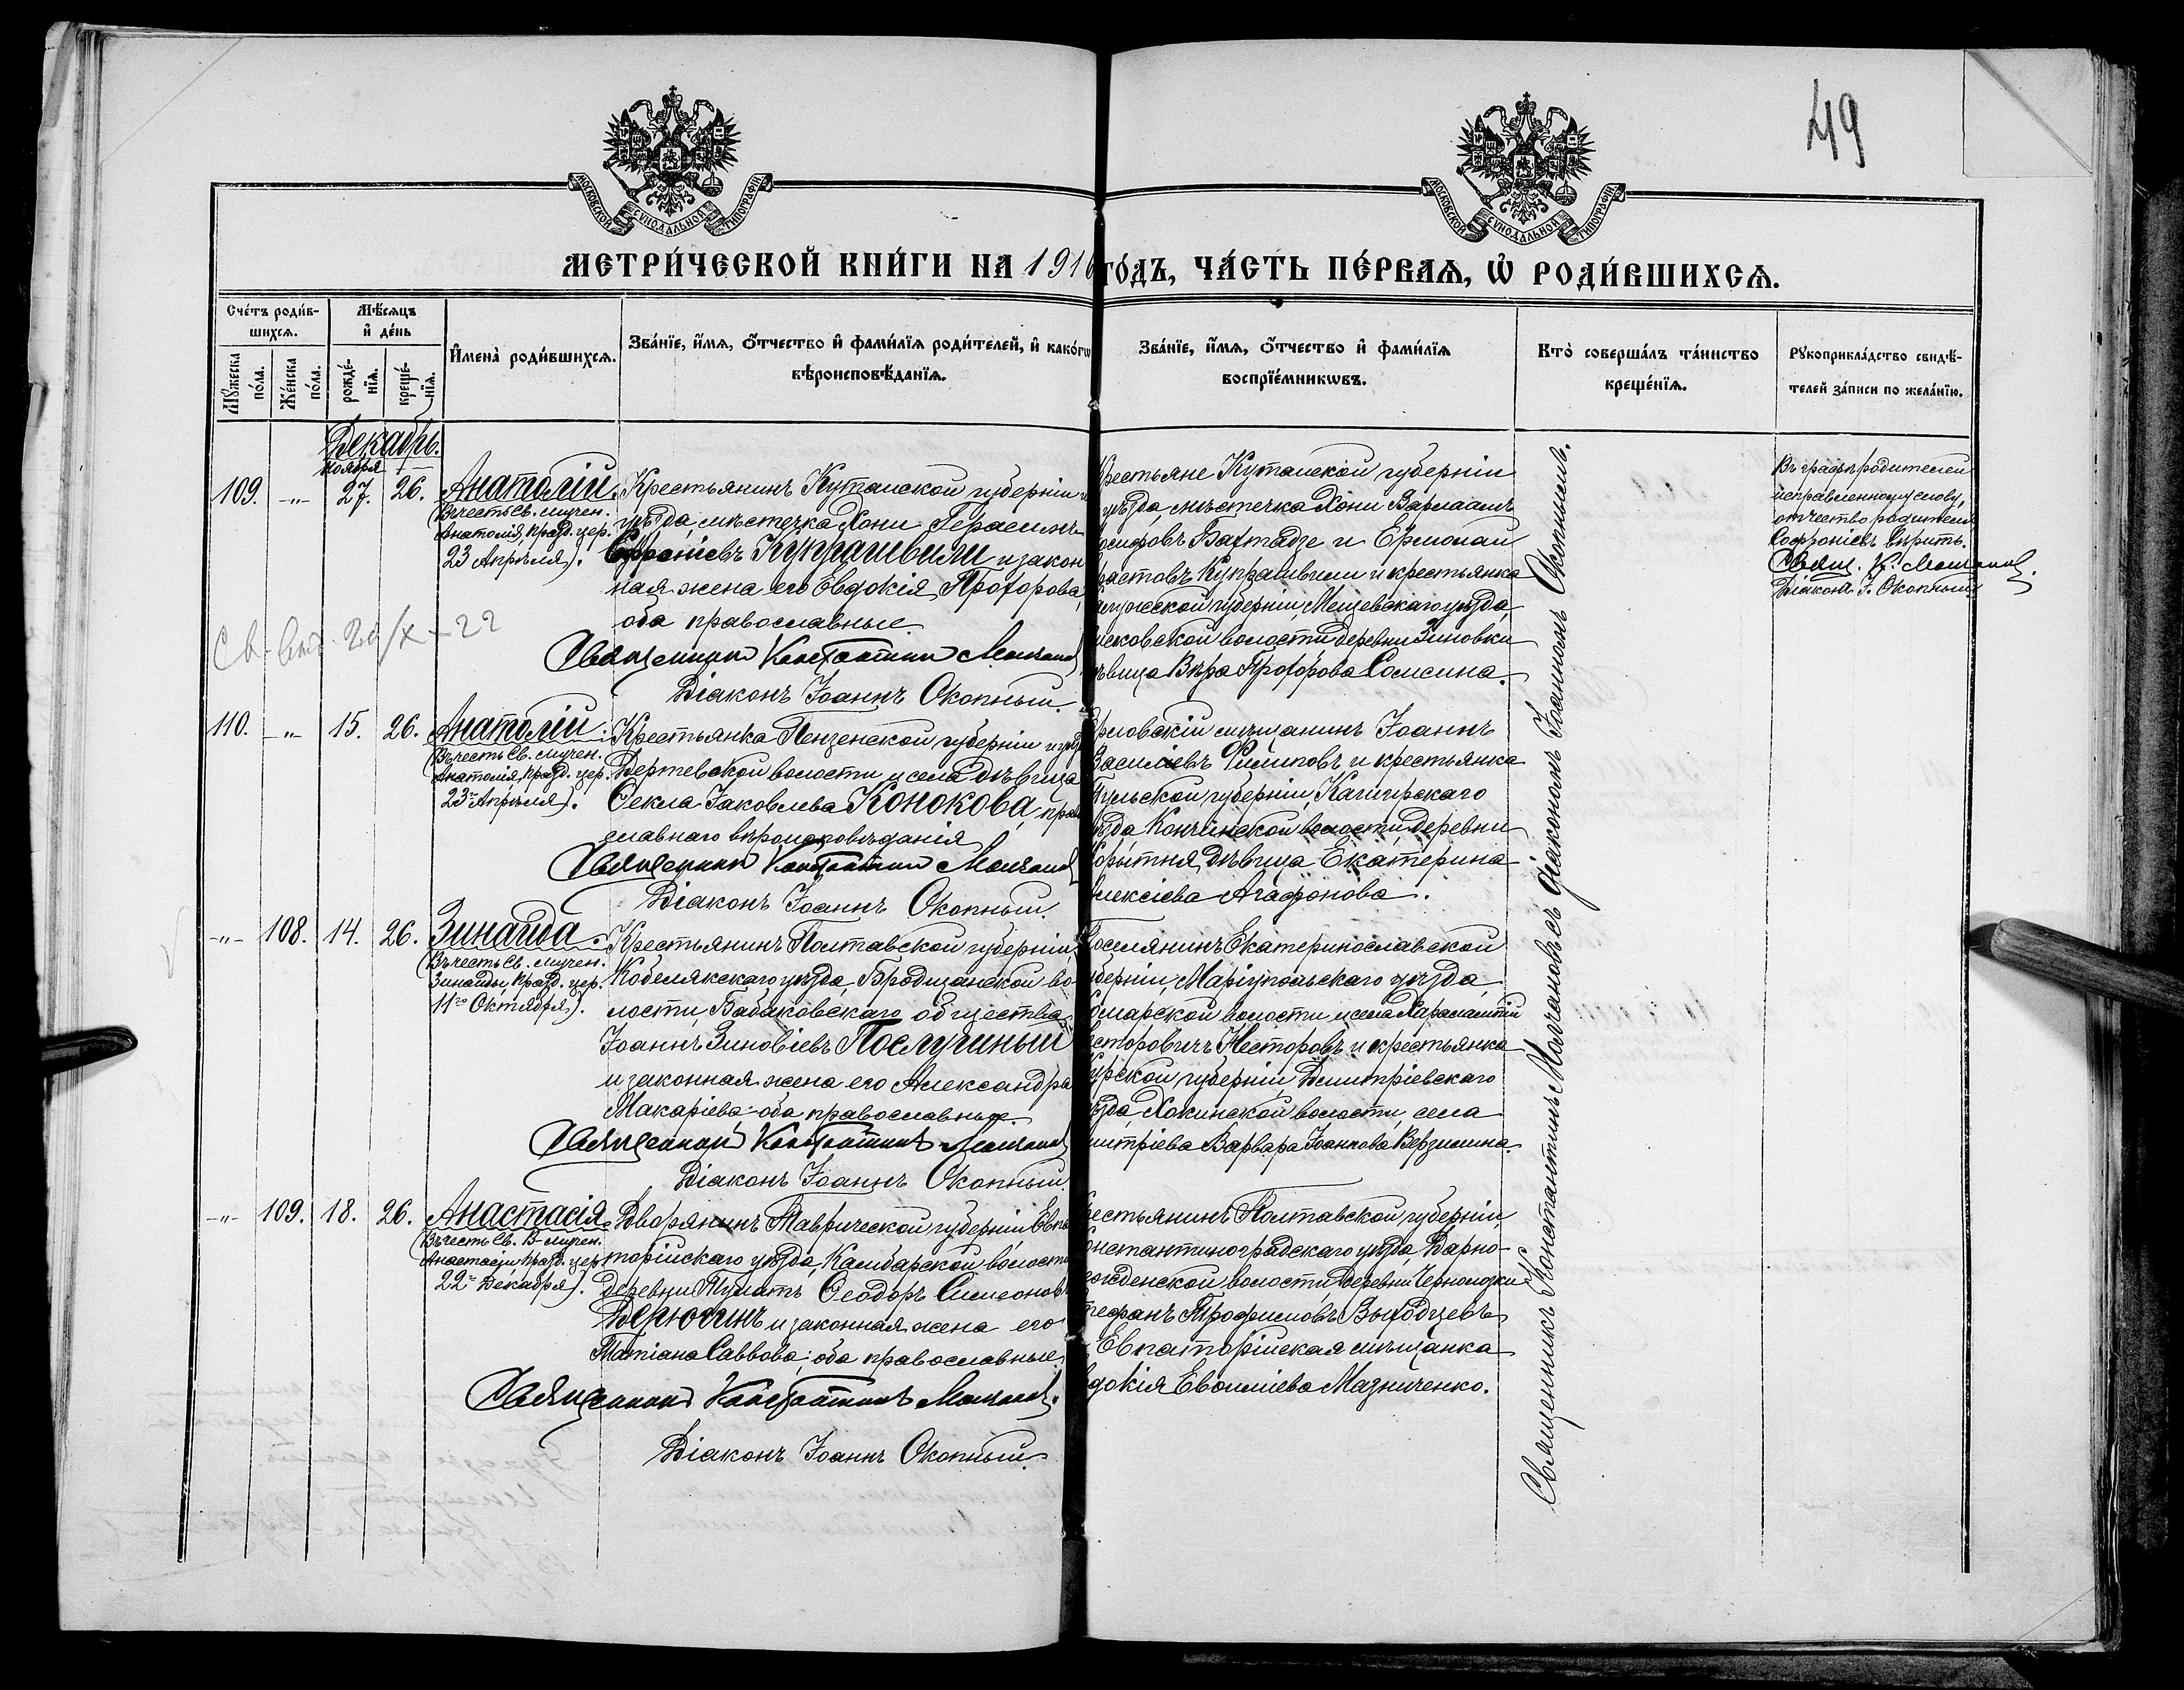 49
МОСКОВСКОЙ СѴНОДАЛЬНОЙ ТИПОГРАФІИ
МОСКОВСКОЙ СѴНОДАЛЬНОЙ ТИПОГРАФІИ
МЕТРИ́ЧЕСКОЙ КНИ́ГИ НА 1916 ГО́ДЪ, ЧА́СТЬ ПЕ́РВАѦ, Ѡ҆ РОДИ́ВШИХСѦ.
Сче́тъ роди́в-
шихсѧ.
Му́жеска по́ла.
Же́нска по́ла.
Мѣ́сѧцъ
и҆ де́нь
рожде́-
нїѧ.
креще́-
нїѧ.
И҆мена̀ роди́вшихсѧ.
Зва́нїе, и҆́мѧ, ѻ҆́тчество и҆ фами́лїѧ роди́телей, и҆ како́гѡ
вѣроисповѣ́данїѧ.
Зва́нїе, и҆́мѧ, ѻ҆́тчество и҆ фами́лїѧ
воспрїе́мникѡвъ.
Кто̀ соверша́лъ та́инство
креще́нїѧ.
Рꙋкоприкла́дство свидѣ́-
телей за́писи по жела́нїю.
Декабрь.
Ноября
109. -„- 27. 26.
Анатолій.
(Въ честь Св. мучен.
Анатолія, празд. цер.
23 Апрѣля).
Крестьянинъ Кутаиской губерніи и
уѣзда, мѣстечка Хони Герасимъ
Софроніевъ Купрашвили и закон
ная жена его Евдокія Прохорова,
оба православные.
Священникъ Константинъ Молчановъ
Діаконъ Іоаннъ Окопный.
Крестьяне Кутаиской губерніи
уѣзда, мѣстечка Хони Варлаамъ
осифовъ Вахтадзе и Ермолай
растовъ Купрашвили и крестьянка
Калужской губерніи, Мещевскаго уѣзда,
ковской волости, деревни Зиновки
дѣвица Вѣра Прохорова Сомсина.
Въ графѣ родителей
исправленному слову,
отчество родителя
Софроніевъ вѣрить.
Свящ. К. Молчановъ.
Діаконъ І. Окопный
Св. выд. 20/X - 22
110. -„- 15. 26.
Анатолій.
(Въ честь Св. мучен.
Анатолія, празд. цер.
23го Апрѣля).
Крестьянка Пензенской губерніи и уѣзд
Дертевской волости и села дѣвица
Ѳекла Іаковлева Конокова, право
славнаго вѣроисповѣданія
Священникъ Константинъ Молчановъ
Діаконъ Іоаннъ Окопный.
Орловскій мѣщанинъ Іоаннъ
Василіевъ Филиповъ и крестьянка
Тульской губерніи, Каширскаго
уѣзда, Кончинской волости, деревни
Корытня, дѣвица Екатерина
Алексіева Агафонова.
-„- 108. 14. 26.
Зинаида.
(Въ честь Св. мучен.
Зинаиды, празд. цер.
11го Октября).
Крестьянинъ Полтавской губерніи,
Кобелякскаго уѣзда, Бродщанской во-
лости, Бабаковскаго общества
Іоаннъ Зиновіевъ Послушный
и законная жена его Александра
Макаріева; оба православные.
Священникъ Константинъ Молчановъ
Діаконъ Іоаннъ Окопный
Поселянинъ Екатеринославской
губерніи, Маріупольскаго уѣзда,
марской волости и села Харалампій
Несторовичъ Несторовъ и крестьянка
Курской губерніи, Дмитріевскаго
уѣзда, Хокинской волости, села
Дмитріева Варвара Іоаннова Верзилина.
-„- 109. 18. 26.
Анастасія
(Въ честь Св. В-мучен.
Анастасіи, празд. цер.
22го Декабря).
Дворянинъ Таврической губерніи, Евпа
торійскаго уѣзда, Камбарской волости
деревни Тулатъ Ѳеодоръ Симеоновъ
Дерюгинъ и законная жена его
Татіана Саввова; оба православные.
Священникъ Константинъ Молчановъ.
Діаконъ Іоаннъ Окопный.
Крестьянинъ Полтавской губерніи,
Константиноградскаго уѣзда, Варно-
волости, деревни
Стефанъ Трофимовъ Выходцевъ
Евпаторійская мѣщанка
Евдокія Евѳиміева Мазниченко.
Священникъ Константинъ Молчановъ съ діакономъ Іоанномъ Окопнымъ.